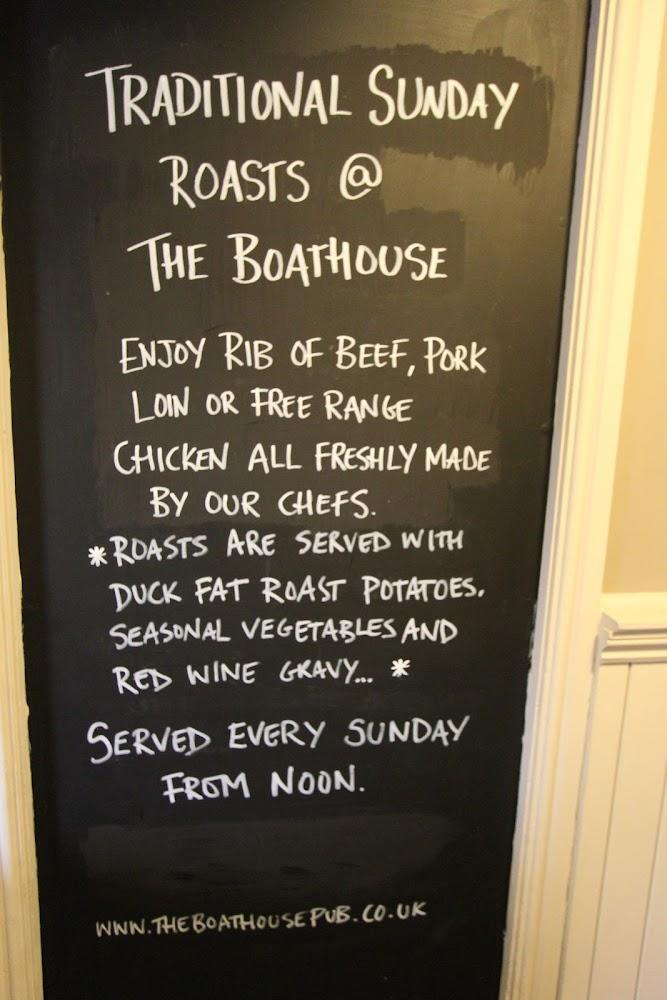 TRADITIONAL SUNDAY
ROASTS @
THE BOATHOUSE
ENJOY RIB OF BEEF, PORK
LOIN OR FREE RANGE
CHICKEN ALL FRESHLY MADE
BY OUR CHEFS.
*ROASTS ARE SERVED WITH
DUCK FAT ROAST POTATOES.
SEASONAL VEGETABLES AND
RED WINE GRAVY... *
SERVED EVERY SUNDAY
FROM NOON.
WWW.THEBOATHOUSEPUB.CO.UK